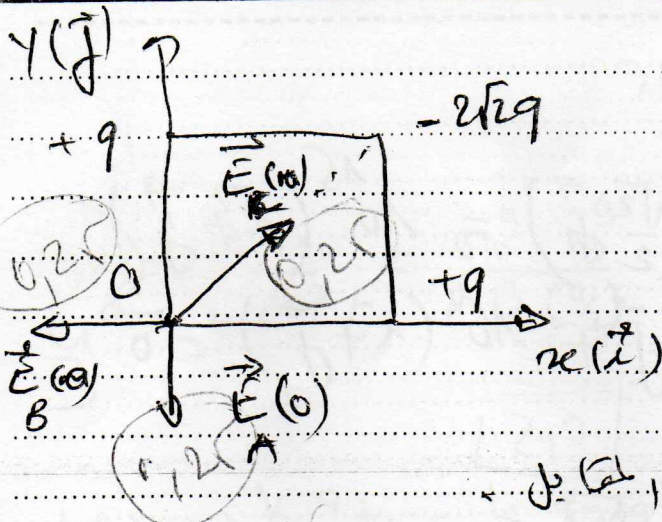 Y(j⃗)
+q
-2√2q
E⃗(o)
0,25
0,25
O
+q
E⃗(o)
B
x(i⃗)
E⃗(o)
A
0,25